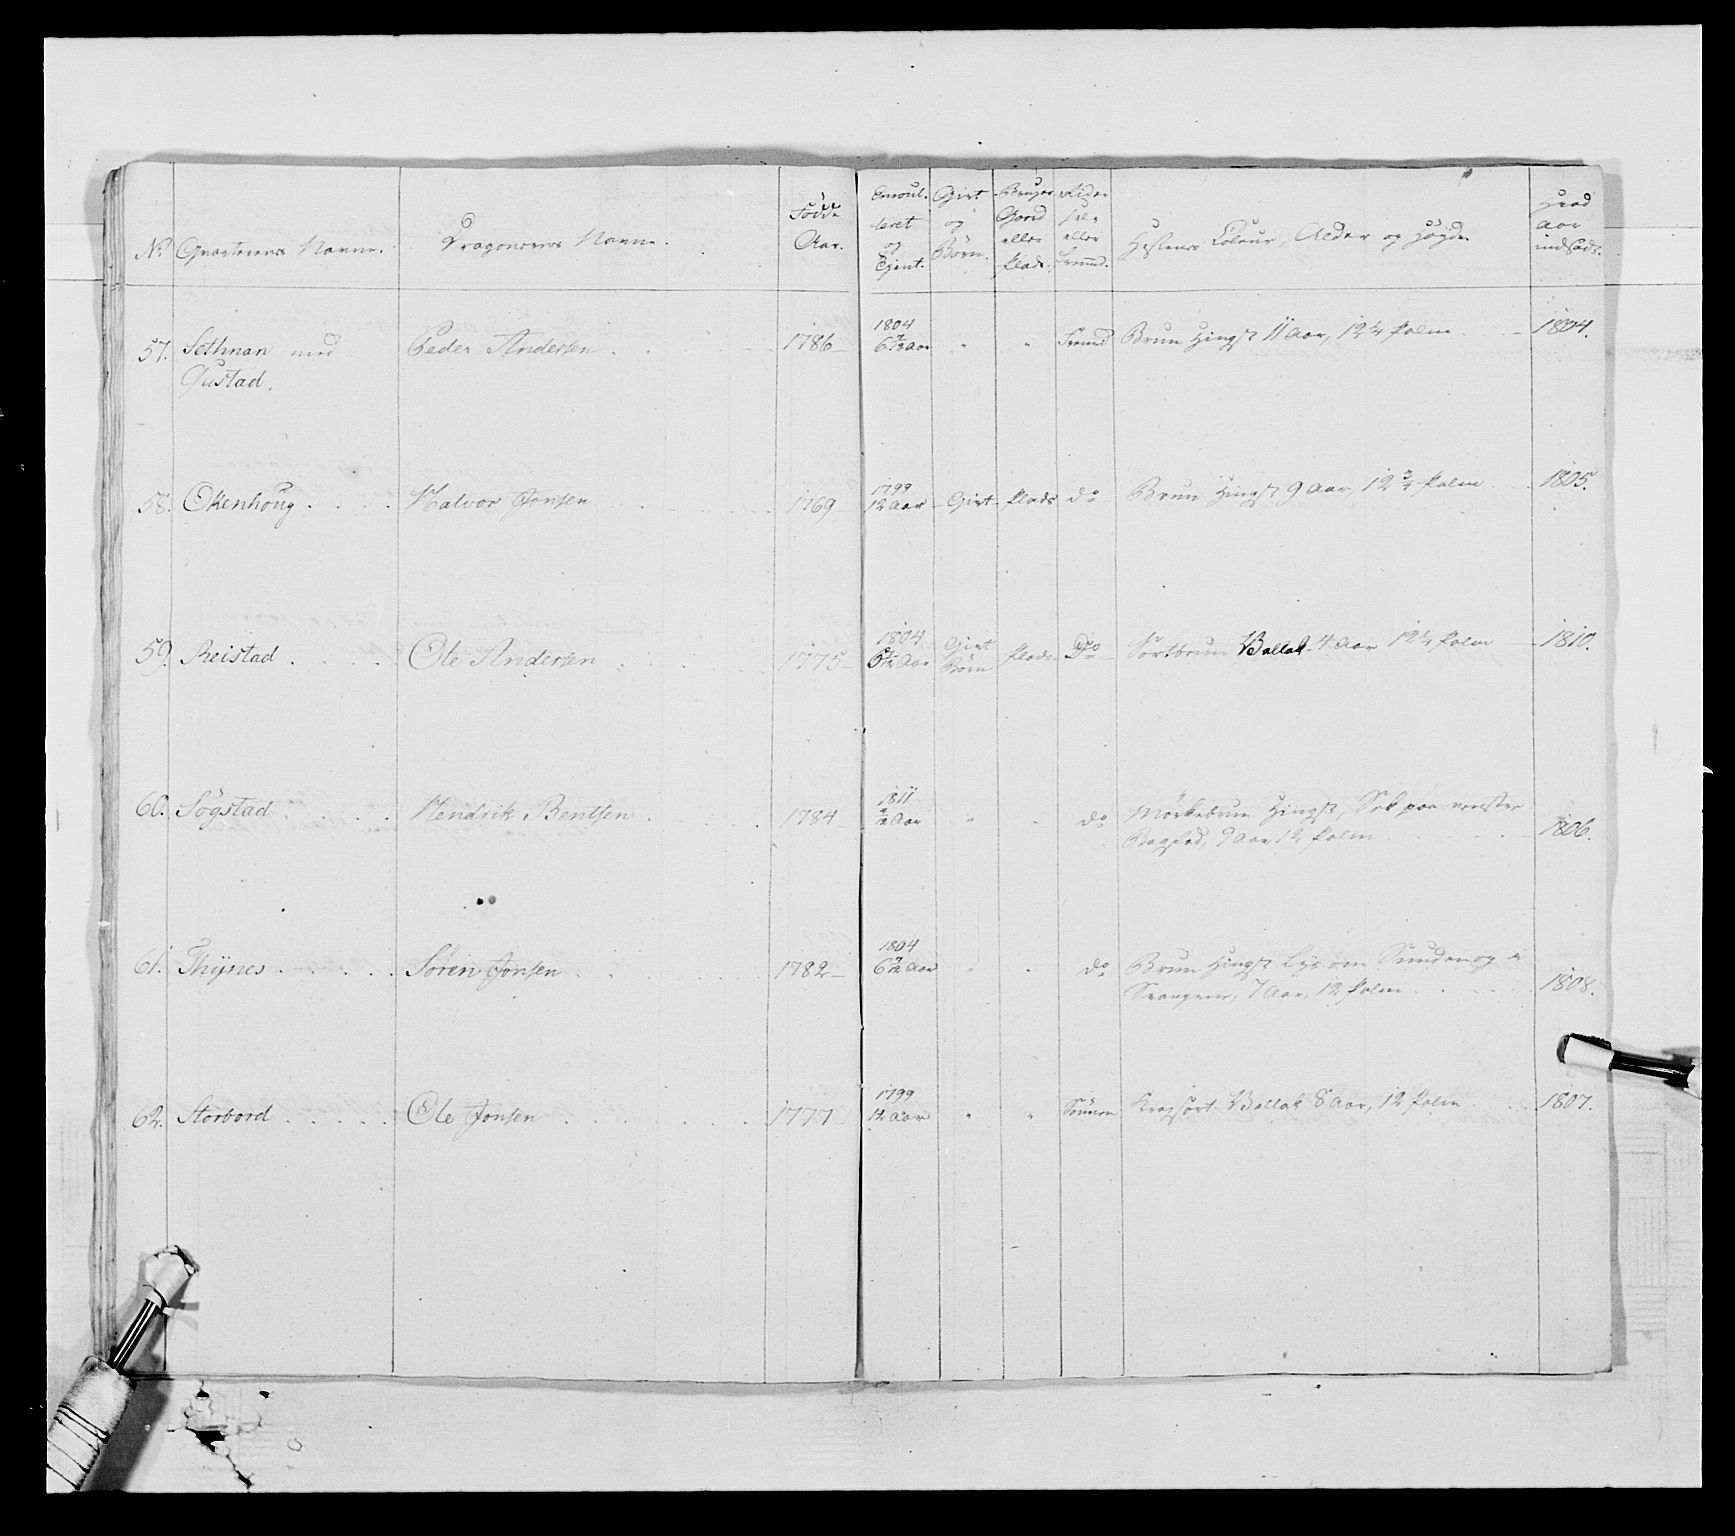 No Qvarterens Navne. Dragonernes Navne. Fødde Aar. Enroulleret og Tjent. Givt og Børn. Bruger Gaard eller Plads. Rider selv eller fremmd. Hestens Coleur, Alder og Høyde. Hvad Aar indsadt.
57. Sethnan med Peder Andersen 1786 1804 6 7/12 Aar " " Fremd Brun Hingst 11 Aar, 12 1/4 Palm 1804.
Gustad.
58. Okenhoug Halvor Jonsen 1769 1799 12 Aar Givt Plads do Brun Hingst 9 Aar, 12 3/4 Palm 1805.
59. Reistad Ole Andersen 1775 1804 Aar Givt Børn Plads Do Sortbrun Vallak 4 Aar 12 1/4 Palm 1810.
60. Søgstad Hendrik Bentsen 1784 1811 Aar " " do Mörkebrun Hingst, Sok paa venster
Bagfod, 9 Aar, 12 Palm 1806.
61. Thynes Søren Jonsen 1782 1804 6 7/12 Aar " " do Brun Hingst Lys om Munden og i
7 Aar, 12 Palm 1808.
62. Storbord Ole Jonsen 1777 1799 12 Aar " " Vallak 8 Aar, 12 Palm 1807.